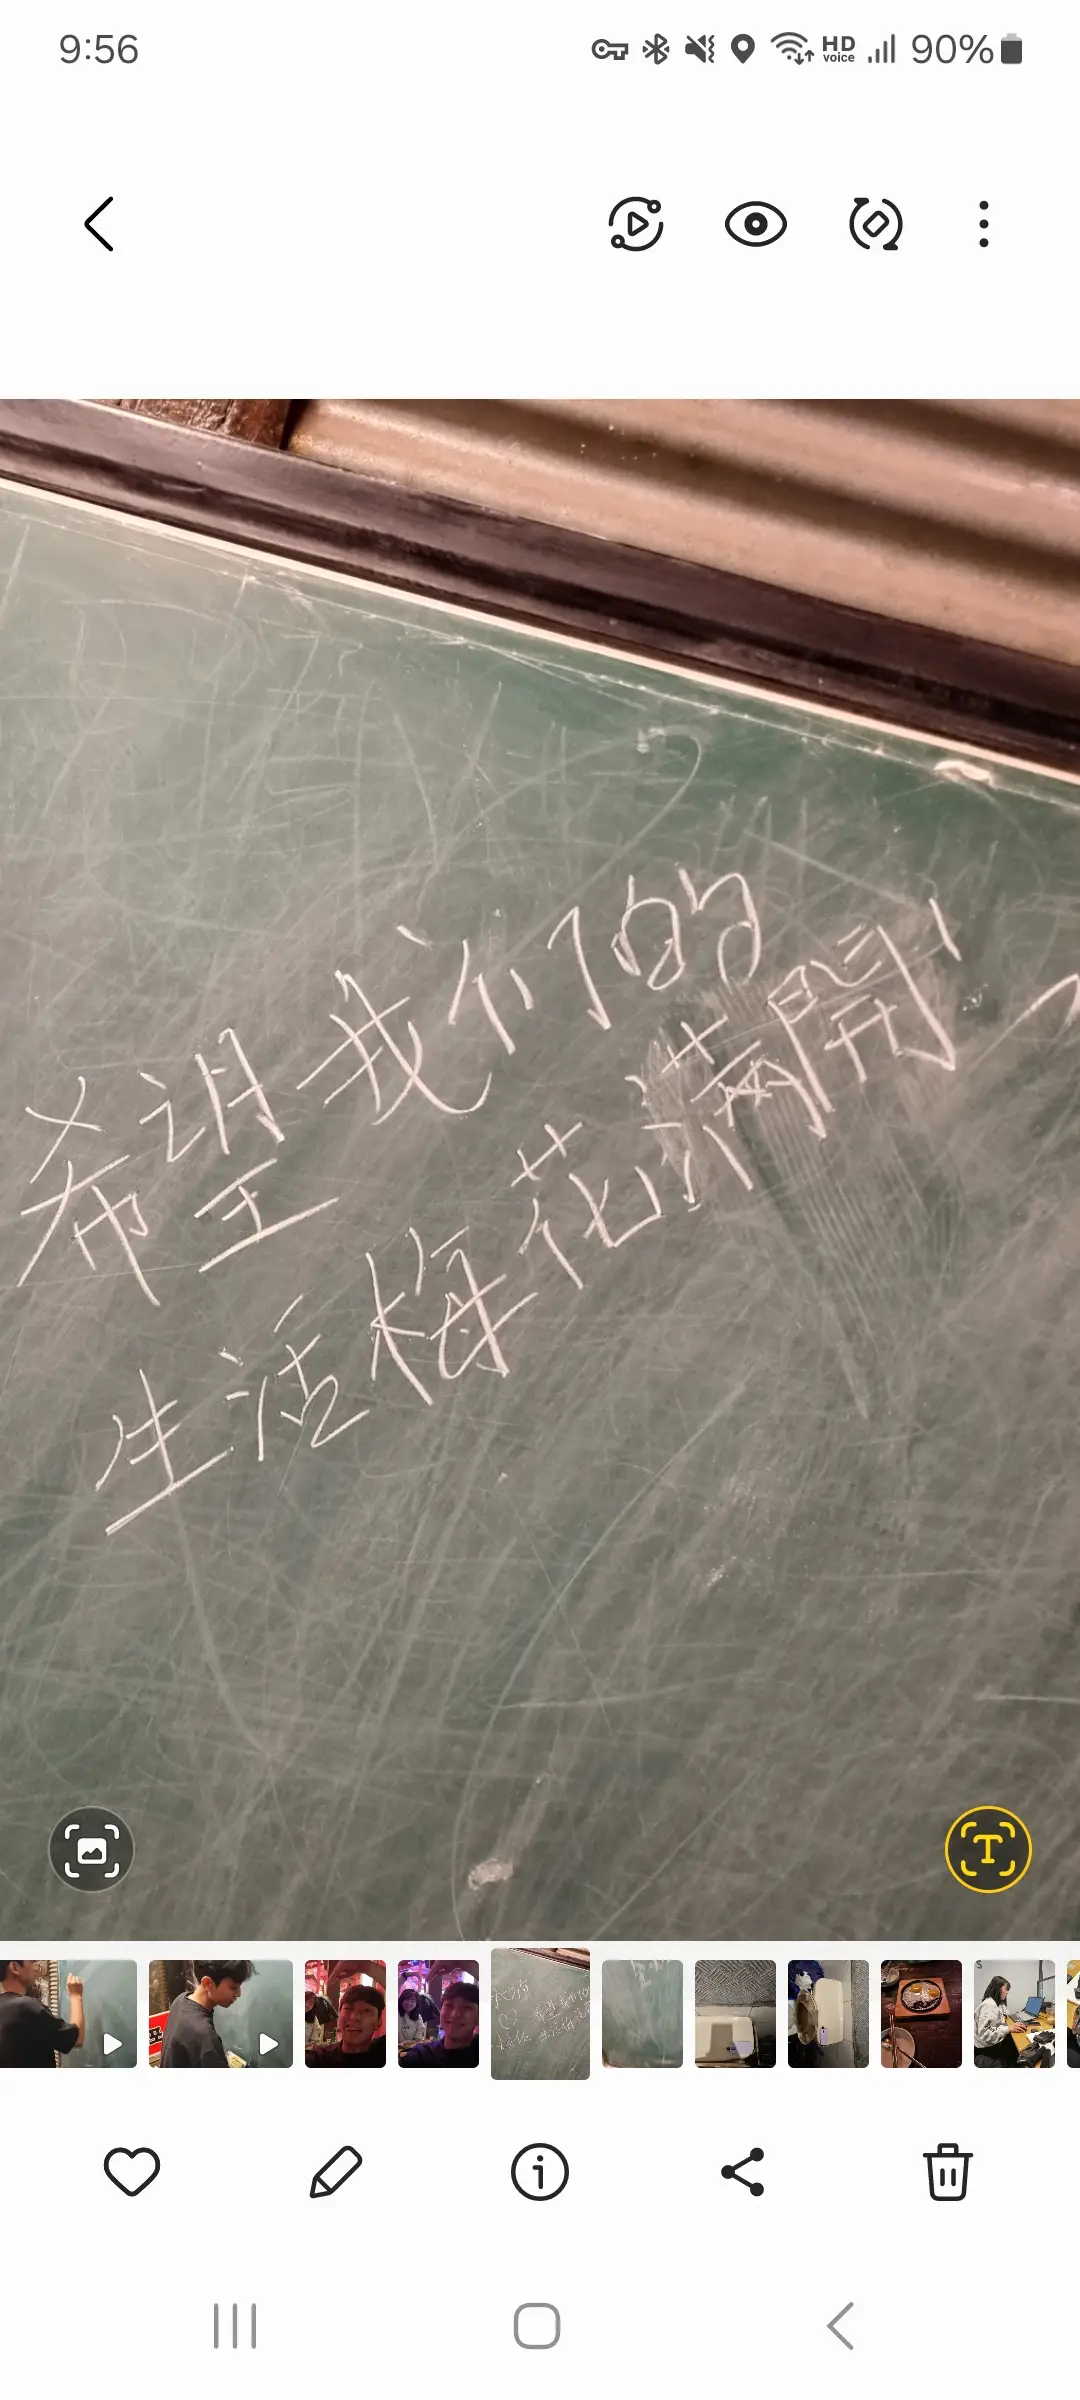 9:56
HD voice
90%
希望我们的
生活梅花满開
T